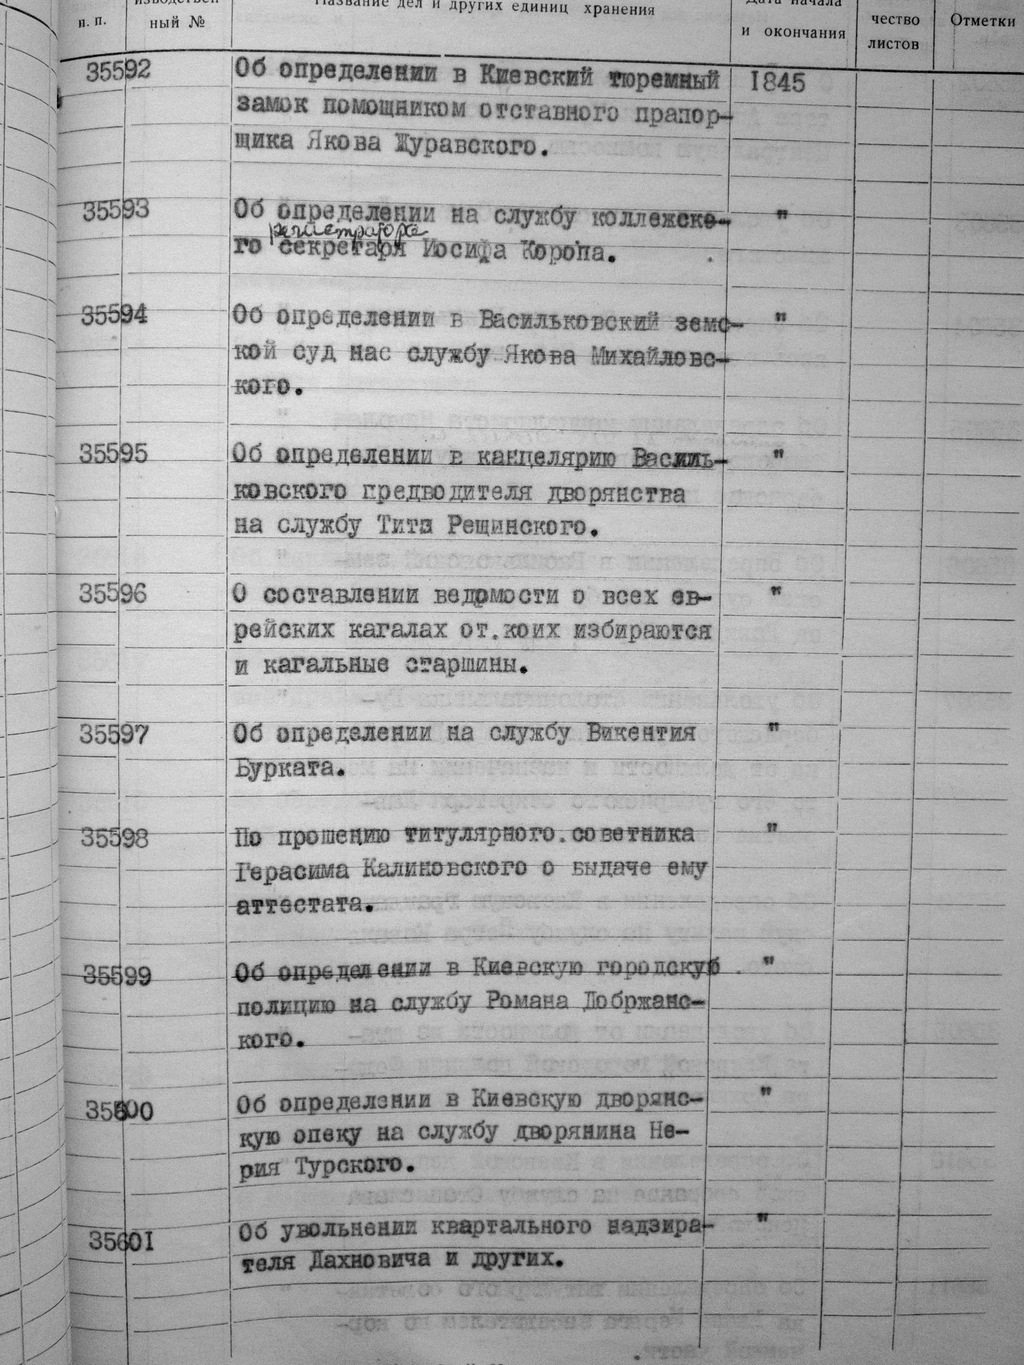 п. п.
ный №
Название дел и других единиц хранения
Дата начала
и окончания
чество
листов
Отметки
35592 Об определении в Киевский тюремный 1845
замок помощником отставного прапор-
щика Якова Журавского.
35593 Об определении на службу коллежско- "
регистратора
го секретаря Иосифа Коропа.
35594 Об определении в Васильковский земс- "
кой суд нас службу Якова Михайловс-
кого.
35595 Об определении в канцелярию Василь- "
ковского предводителя дворянства
на службу Тита Рещинского.
35596 О составлении ведомости о всех ев- "
рейских кагалах от.коих избираются
и кагальные старшины.
35597 Об определении на службу Викентия "
Бурката.
35598 По прошению титулярного.советника "
Герасима Калиновского о выдаче ему
аттестата.
35599 Об определении в Киевскую городскую "
полицию на службу Романа Добржанс-
кого.
35600 Об определении в Киевскую дворянс- "
кую опеку на службу дворянина Не-
рия Турского.
35601 Об увольнении квартального надзира- "
теля Дахновича и других.